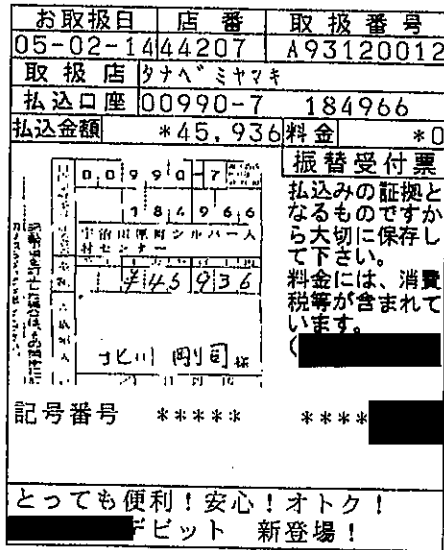 お取扱日 店番 取扱番号
05-02-14 44207 A93120012
取扱店 タナベミヤマキ
払込口座 00990-7 184966
払込金額 *45,936 料金 *0
振替受付票
払込みの証拠と
なるものですか
ら大切に保存し
て下さい。
料金には、消費
税等が含まれて
います。
(
00990-7
184966
宇治田原町シルバー人
材センター
¥45936
様
記号番号 ***** ****
とっても便利!安心!オトク!
デビット 新登場!